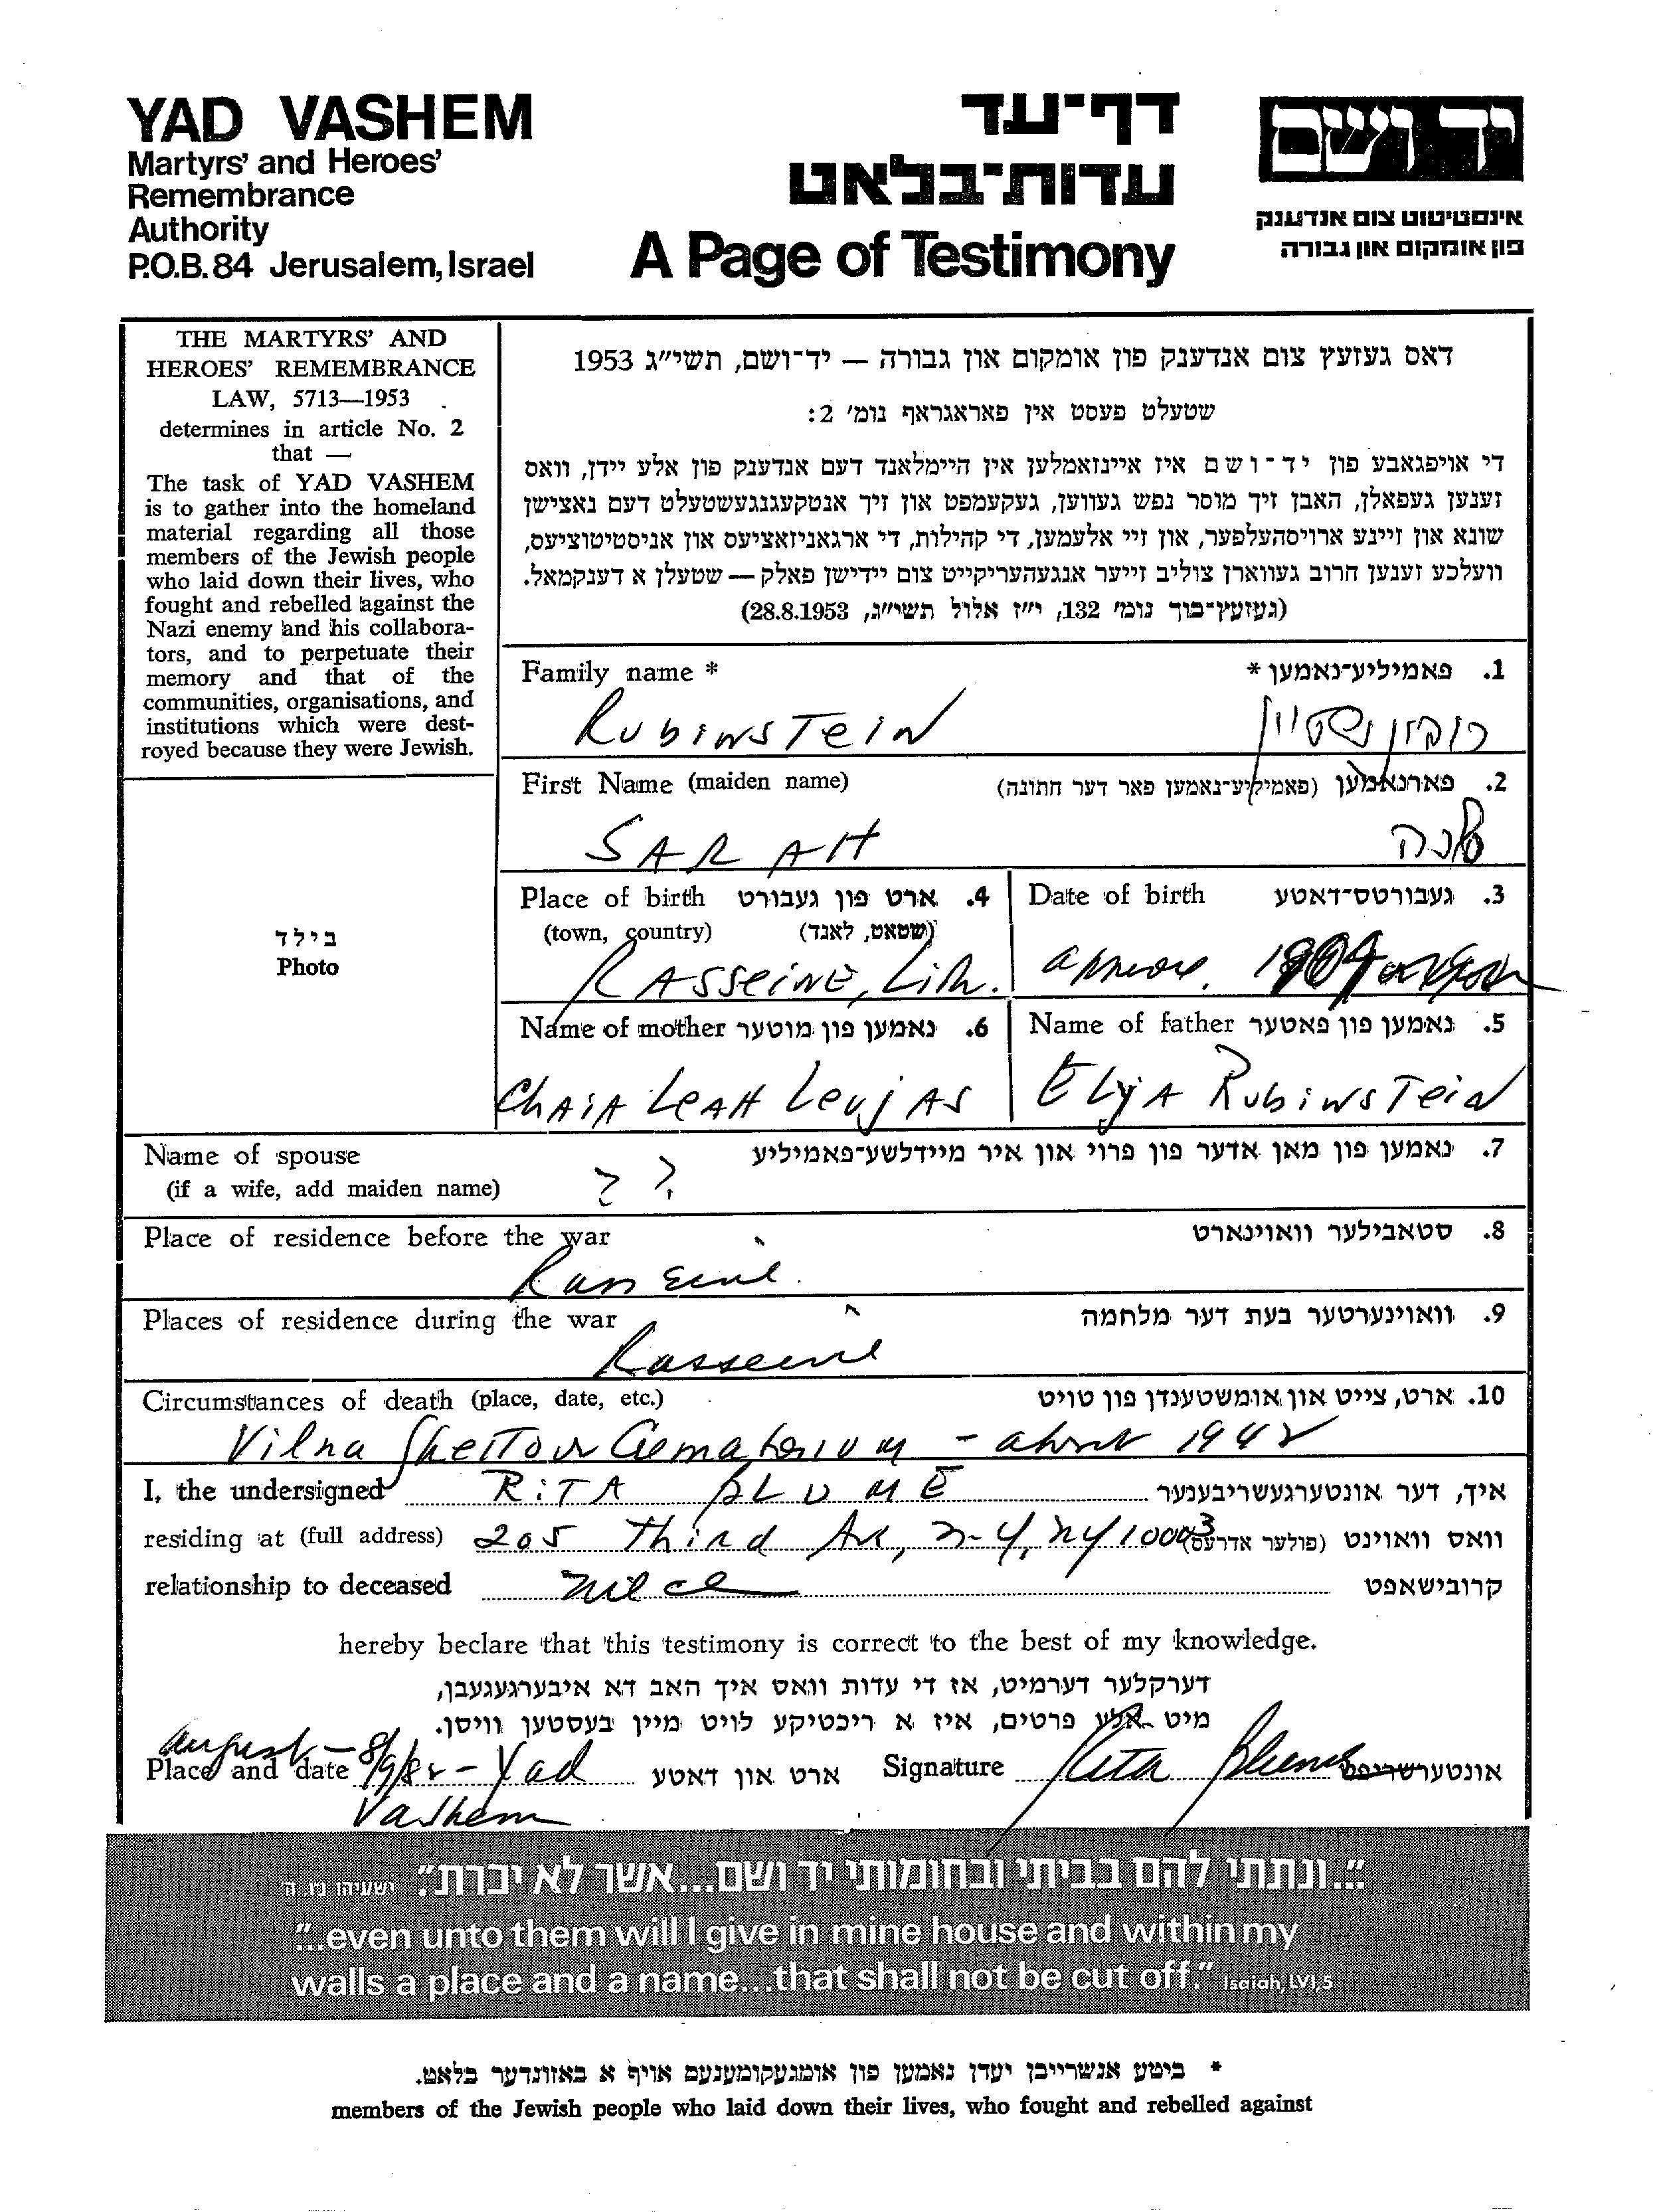 YAD VASHEM
Martyrs' and Heroes'
Remembrance
Authority
P.O.B. 84 Jerusalem, Israel
דף־עד
עדות־בלאט
A Page of Testimony
יד ושם
אינסטיטוט צום אנדענק
פון אומקום און גבורה
THE MARTYRS' AND
HEROES' REMEMBRANCE
LAW, 5713—1953
determines in article No. 2
that —
The task of YAD VASHEM
is to gather into the homeland
material regarding all those
members of the Jewish people
who laid down their lives, who
fought and rebelled against the
Nazi enemy and his collabora-
tors, and to perpetuate their
memory and that of the
communities, organisations, and
institutions which were dest-
royed because they were Jewish.
בילד
Photo
דאס געזעץ צום אנדענק פון אומקום און גבורה — יד־ושם, תשי״ג 1953
שטעלט פעסט אין פאראגראף נומ׳ 2:
די אויפגאבע פון יד־ושם איז איינזאמלען אין היימלאנד דעם אנדענק פון אלע יידן, וואס
זענען געפאלן, האבן זיך מוסר נפש געווען, געקעמפט און זיך אנטקעגנגעשטעלט דעם נאצישן
שונא און זיינע ארויסהעלפער, און זיי אלעמען, די קהילות, די ארגאניזאציעס און אניסטיטוציעס,
וועלכע זענען חרוב געווארן צוליב זייער אנגעהעריקייט צום יידישן פאלק — שטעלן א דענקמאל.
(געזעץ־בוך נומ׳ 132, י״ז אלול תשי״ג, 28.8.1953)
Family name * 1. פאמיליע־נאמען *
RUBINSTEIN רובינשטיין
First Name (maiden name) 2. פארנאמען (פאמיליע־נאמען פאר דער חתונה)
SARAH שרה
Place of birth 4. ארט פון געבורט
(town, country) (שטאט, לאנד)
RASSEINE, Lith.
Date of birth 3. געבורטס־דאטע
approx. 1904
Name of mother 6. נאמען פון מוטער
CHAIA LEAH LEVJAS
Name of father 5. נאמען פון פאטער
ELJA RUBINSTEIN
Name of spouse 7. נאמען פון מאן אדער פון פרוי און איר מיידלשע־פאמיליע
(if a wife, add maiden name) ? ?
Place of residence before the war 8. סטאבילער וואוינארט
Rasseine
Places of residence during the war 9. וואוינערטער בעת דער מלחמה
Rasseine
Circumstances of death (place, date, etc.) 10. ארט, צייט און אומשטענדן פון טויט
Vilna Ghetto or Crematorium - about 1942
I, the undersigned RITA BLUME איך, דער אונטערגעשריבענער
residing at (full address) 205 Third Av, N-Y, NY 10003 וואס וואוינט (פולער אדרעס)
relationship to deceased niece קרובישאפט
hereby beclare that this testimony is correct to the best of my knowledge.
דערקלער דערמיט, אז די עדות וואס איך האב דא איבערגעגעבן,
מיט אלע פרטים, איז א ריכטיקע לויט מיין בעסטען וויסן.
August - 8/9/82 - Yad
Place and date ארט און דאטע Signature Rita Blume אונטערשריפט
Vashem
"...ונתתי להם בביתי ובחומותי יד ושם...אשר לא יכרת." ישעיהו נ״ו, ה
"...even unto them will I give in mine house and within my
walls a place and a name...that shall not be cut off." Isaiah, LVI, 5
* ביטע אנשרייבן יעדן נאמען פון אומגעקומענעם אויף א באזונדער בלאט.
members of the Jewish people who laid down their lives, who fought and rebelled against